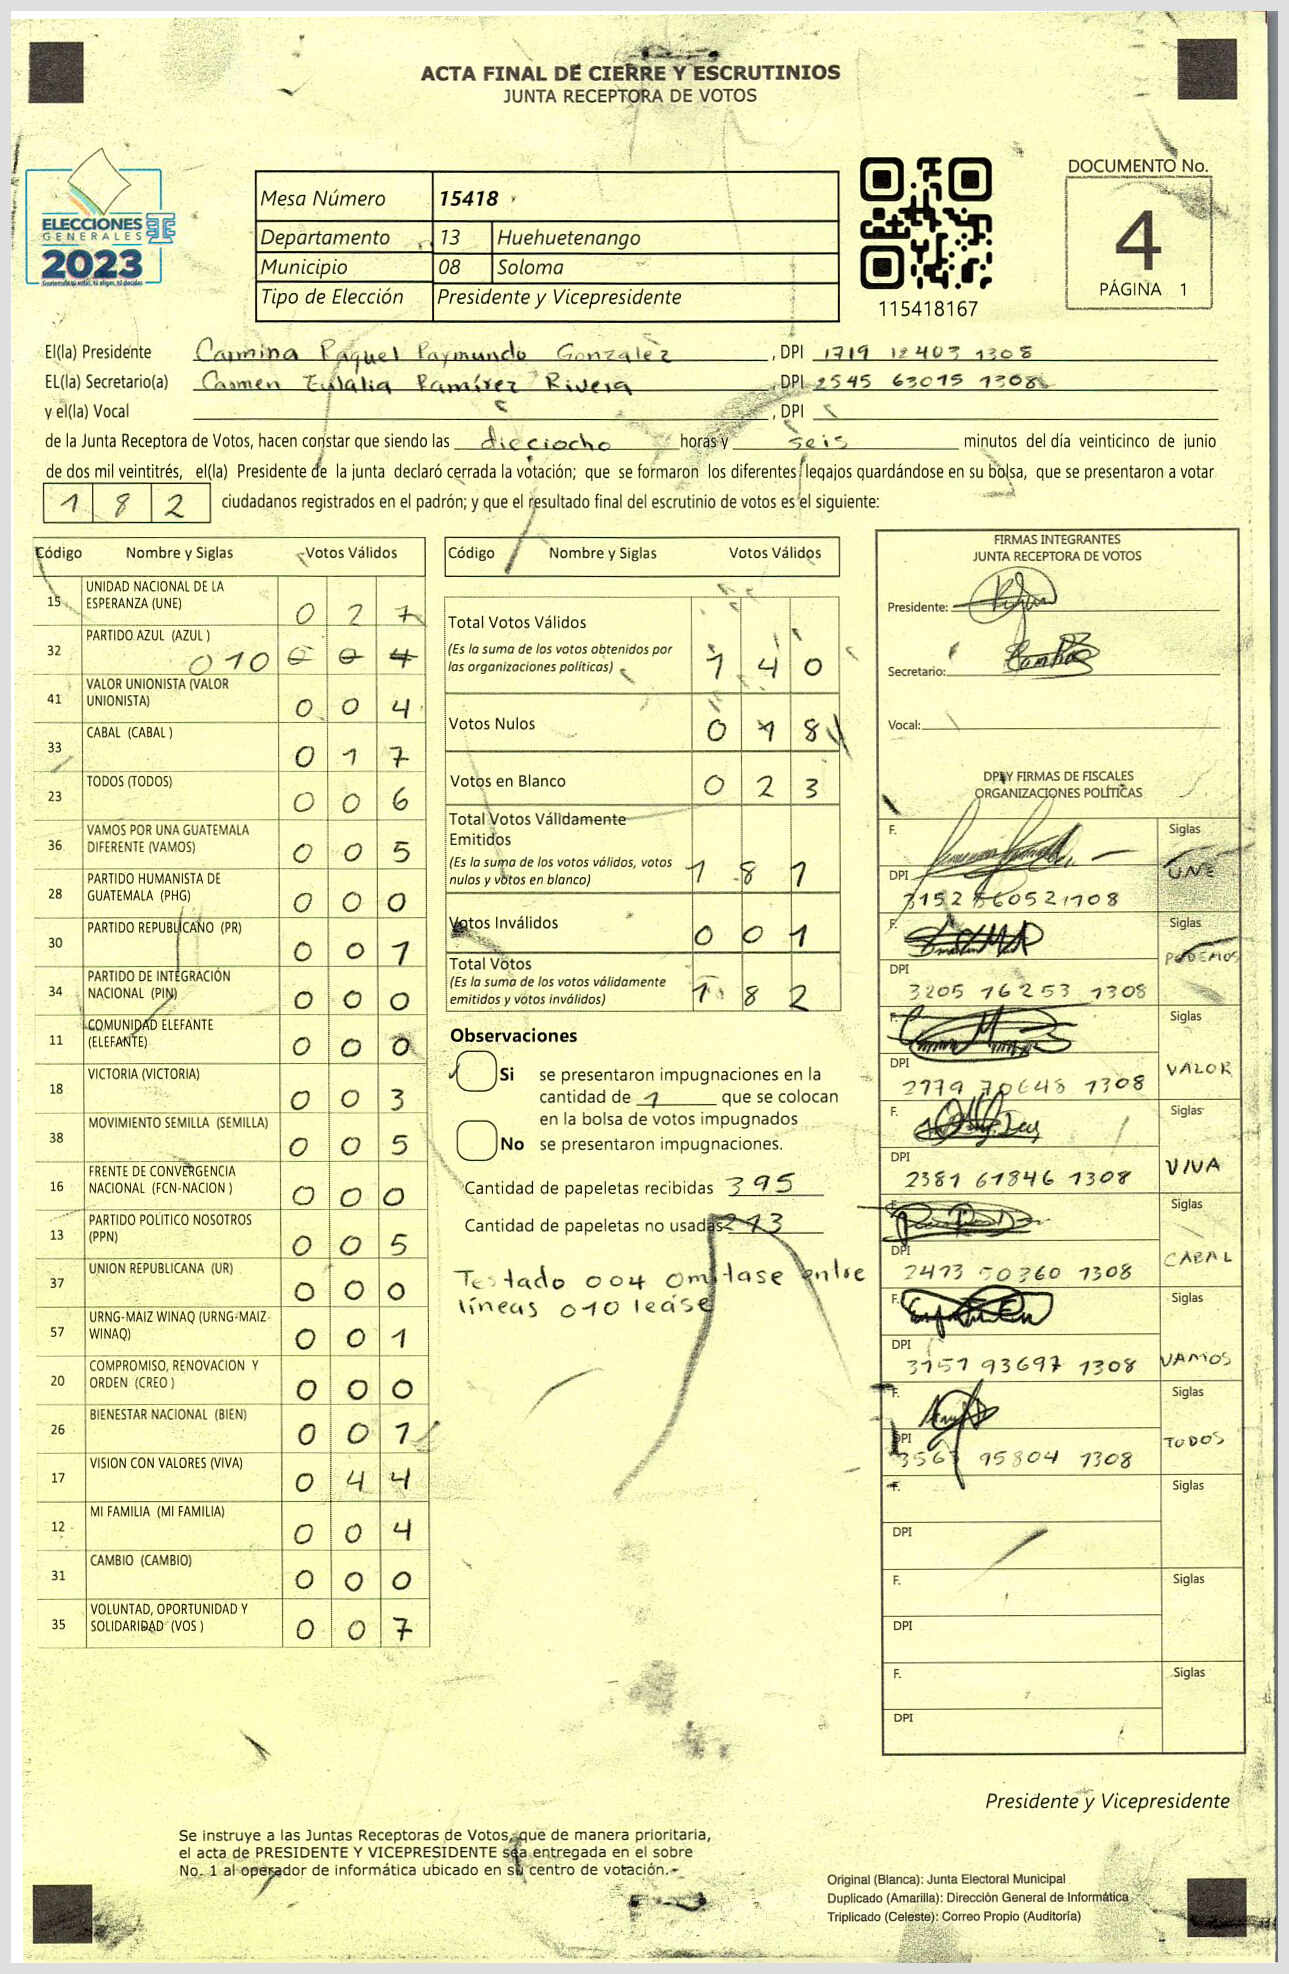 ACTA FINAL DE CIERRE Y ESCRUTINIOS
JUNTA RECEPTORA DE VOTOS
ELECCIONES
GENERALES
2023
Mesa Número 15418
Departamento 13 Huehuetenango
Municipio 08 Soloma
Tipo de Elección Presidente y Vicepresidente
115418167
DOCUMENTO No.
4
PÁGINA 1
El(la) Presidente Carmina Raquel Raymundo Gonzalèz, DPI 1719 12403 1308
EL(la) Secretario(a) Carmen Eulalia Ramírez Rivera, DPI 2545 63015 1308
y el(la) Vocal , DPI
de la Junta Receptora de Votos, hacen constar que siendo las dieciocho horas y seis minutos del día veinticinco de junio
de dos mil veintitrés, el(la) Presidente de la junta declaró cerrada la votación; que se formaron los diferentes legajos quardándose en su bolsa, que se presentaron a votar
182 ciudadanos registrados en el padrón; y que el resultado final del escrutinio de votos es el siguiente:
Código Nombre y Siglas Votos Válidos
15 UNIDAD NACIONAL DE LA
ESPERANZA (UNE) 0 2 7
32 PARTIDO AZUL (AZUL )
010 0 0 4
41 VALOR UNIONISTA (VALOR
UNIONISTA) 0 0 4
33 CABAL (CABAL ) 0 1 7
23 TODOS (TODOS) 0 0 6
36 VAMOS POR UNA GUATEMALA
DIFERENTE (VAMOS) 0 0 5
28 PARTIDO HUMANISTA DE
GUATEMALA (PHG) 0 0 0
30 PARTIDO REPUBLICANO (PR) 0 0 1
34 PARTIDO DE INTEGRACIÓN
NACIONAL (PIN) 0 0 0
11 COMUNIDAD ELEFANTE
(ELEFANTE) 0 0 0
18 VICTORIA (VICTORIA) 0 0 3
38 MOVIMIENTO SEMILLA (SEMILLA) 0 0 5
16 FRENTE DE CONVERGENCIA
NACIONAL (FCN-NACION ) 0 0 0
13 PARTIDO POLITICO NOSOTROS
(PPN) 0 0 5
37 UNION REPUBLICANA (UR) 0 0 0
57 URNG-MAIZ WINAQ (URNG-MAIZ-
WINAQ) 0 0 1
20 COMPROMISO, RENOVACION Y
ORDEN (CREO ) 0 0 0
26 BIENESTAR NACIONAL (BIEN) 0 0 1
17 VISION CON VALORES (VIVA) 0 4 4
12 MI FAMILIA (MI FAMILIA) 0 0 4
31 CAMBIO (CAMBIO) 0 0 0
35 VOLUNTAD, OPORTUNIDAD Y
SOLIDARIDAD (VOS ) 0 0 7
Código Nombre y Siglas Votos Válidos
Total Votos Válidos
(Es la suma de los votos obtenidos por
las organizaciones políticas) 1 4 0
Votos Nulos 0 18
Votos en Blanco 0 2 3
Total Votos Válidamente
Emitidos
(Es la suma de los votos válidos, votos
nulos y votos en blanco) 1 8 1
Votos Inválidos 0 0 1
Total Votos
(Es la suma de los votos válidamente
emitidos y votos inválidos) 1 8 2
Observaciones
Si se presentaron impugnaciones en la
cantidad de 1 que se colocan
en la bolsa de votos impugnados
No se presentaron impugnaciones.
Cantidad de papeletas recibidas 395
Cantidad de papeletas no usadas 213
Testado 004 Omitase entre
líneas 010 leáse
FIRMAS INTEGRANTES
JUNTA RECEPTORA DE VOTOS
Presidente:
Secretario:
Vocal:
DPI Y FIRMAS DE FISCALES
ORGANIZACIONES POLÍTICAS
F. Siglas
UNE
DPI
3152 56052 1308
F. Siglas
PODEMOS
DPI
3205 16253 1308
F. Siglas
VALOR
DPI
2779 70648 1308
F. Siglas
VIVA
DPI
2381 61846 1308
F. Siglas
CABAL
DPI
2473 50360 1308
F. Siglas
VAMOS
DPI
3151 93697 1308
F. Siglas
TODOS
DPI
3563 95804 1308
F. Siglas
DPI
F. Siglas
DPI
F. Siglas
DPI
Presidente y Vicepresidente
Se instruye a las Juntas Receptoras de Votos, que de manera prioritaria,
el acta de PRESIDENTE Y VICEPRESIDENTE sea entregada en el sobre
No. 1 al operador de informática ubicado en su centro de votación.-
Original (Blanca): Junta Electoral Municipal
Duplicado (Amarilla): Dirección General de Informática
Triplicado (Celeste): Correo Propio (Auditoría)